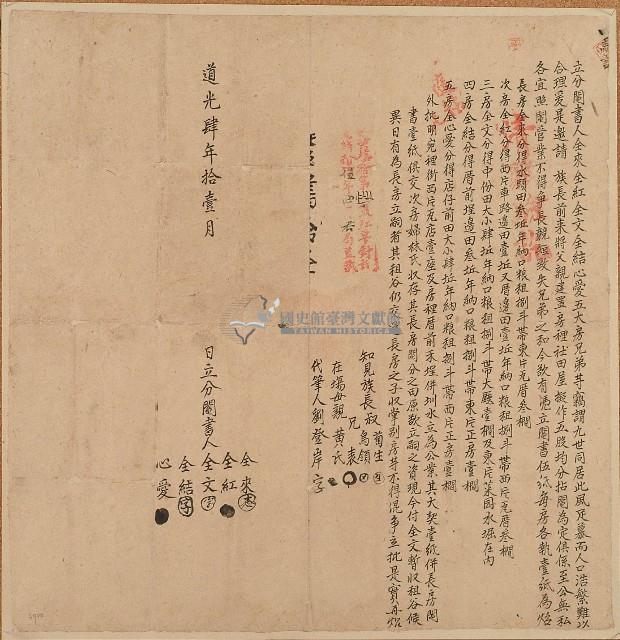 立分鬮書人仝來仝紅仝文仝結心愛五大房兄弟等竊謂九世同居此風足慕而人口浩繁難以
合理爰是邀請 族長前來將父親建置房裡社田屋擬作五股均分拈鬮為定俱係至公無私
各宜照鬮管業不得爭長競短致失兄弟之和今欲有憑立鬮書伍紙每房各執壹紙為炤
長房仝來分得水頭田叁坵年納口粮租捌斗帶東片瓦厝叁欄
次房仝紅分得西片車路邊田壹坵又厝邊田壹坵年納口粮租捌斗帶西片瓦厝叁欄
三房仝文分得中份田大小肆坵年納口粮租捌斗帶大廳壹欄及東片菜园水堀在內
四房仝結分得厝前埕邊田叁坵年納口粮租捌斗帶東片正房壹欄
五房仝心愛分得店仔前田大小肆坵年納口粮租捌斗帶西片正房壹欄
外批明宛裡街西片瓦店壹座及房裡厝前禾埕併圳水立為公業其大契壹紙併長房鬮
書壹紙俱交次房婦林氏收存其長房鬮分之田原欲立嗣之資現今付仝文暫收租谷候
異日有為長房立嗣者其租谷仍交長房之子收掌別房等不得混爭立批是實再炤
知見族長叔 菊生
兄 烏領
袁
在場母親 黃氏
代筆人劉登岸 字
道光肆年拾壹月 日立分鬮書人
仝來
仝紅
仝文
仝結
心愛
國史館臺灣文獻館
TAIWAN HISTORICA